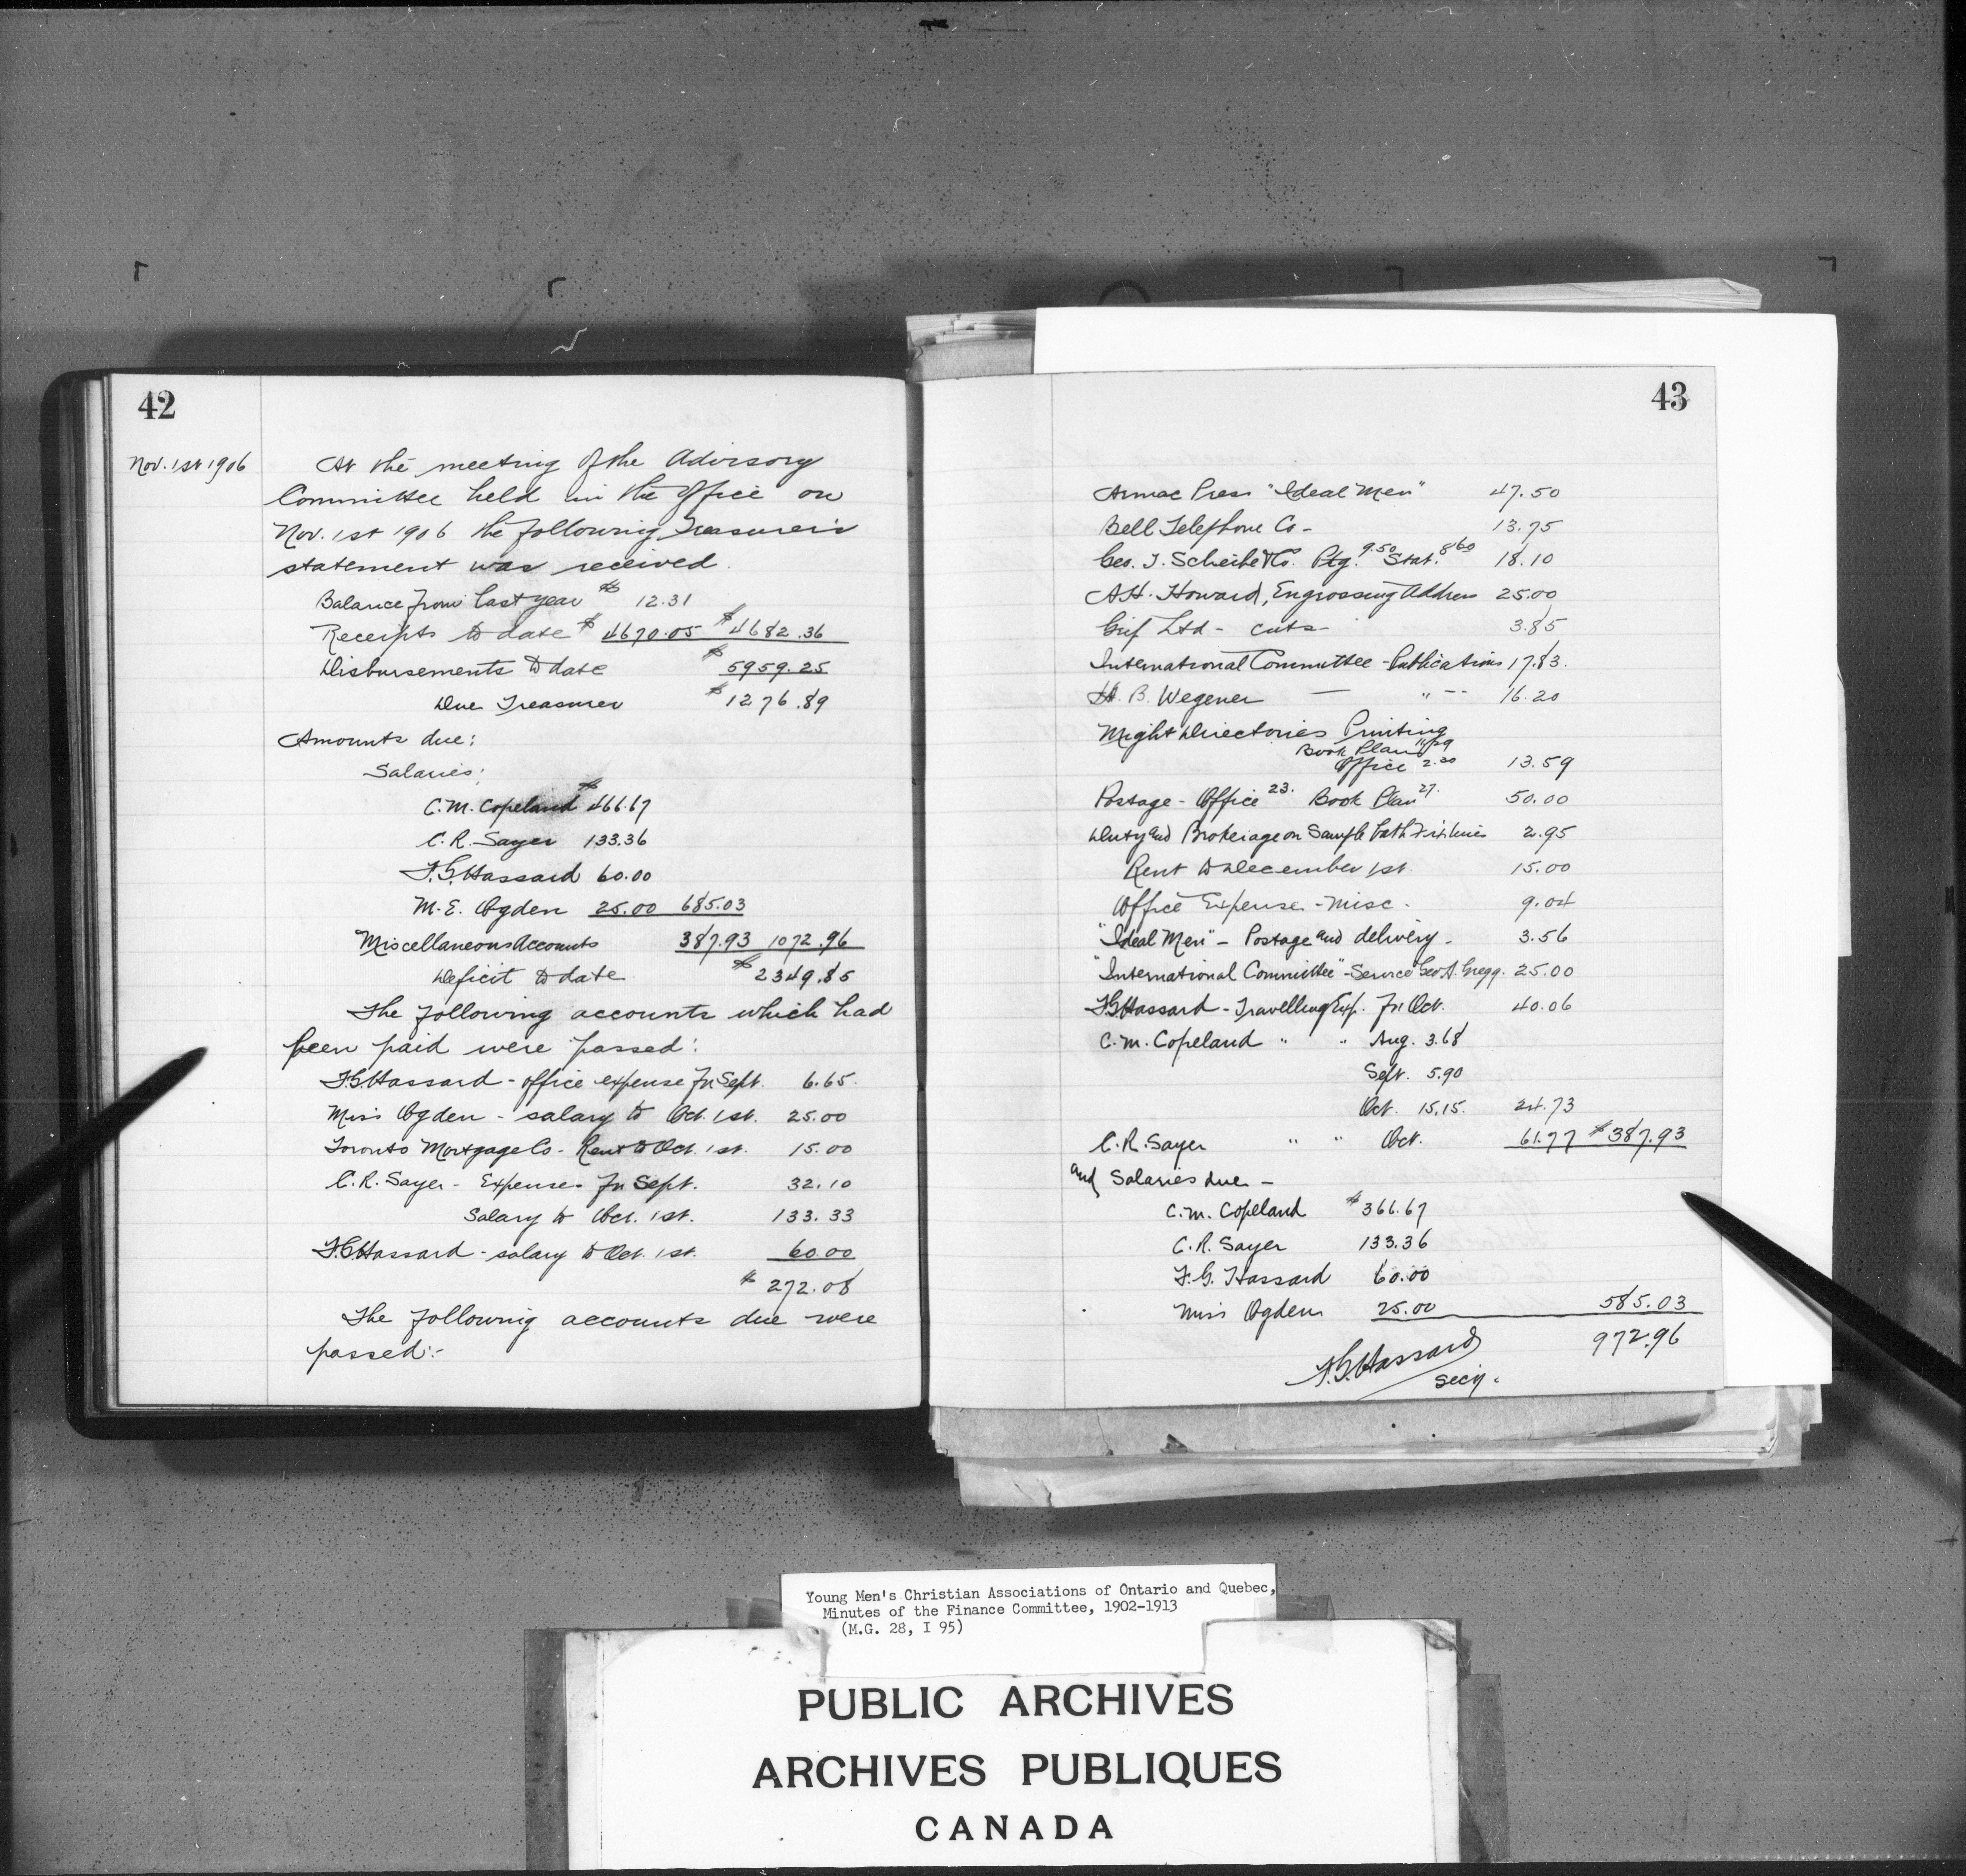 42
Nov. 1st 1906
At the meeting of the Advisory
Committee held in the office on
Nov. 1st 1906 the following Treasurer's
statement was received.
Balance from last year $ 12.31
Receipts to date $ 4670.05 $ 4682.36
Disbursements to date $ 5959.25
Due Treasurer $ 1276.89
Amounts due:
Salaries:
C.M. Copeland $ 466.67
C.R. Sayer 133.36
F.G. Hassard 60.00
M.E. Ogden 25.00 685.03
Miscellaneous Accounts 387.93 1072.96
Deficit to date $ 2349.85
The following accounts which had
been paid were passed:
F.G. Hassard - office expense for Sept. 6.65
Miss Ogden - salary to Oct. 1st. 25.00
Toronto Mortgage Co - Rent to Oct. 1st. 15.00
C.R. Sayer - Expenses for Sept. 32.10
Salary to Oct. 1st. 133.33
F.G. Hassard - salary to Oct. 1st. 60.00
$ 272.08
The following accounts due were
passed:-
43
Armac Press "Ideal Men" 47.50
Bell Telephone Co - 13.75
Geo. T. Scheibe & Co. Ptg. 9.50 Stat. 8.60 18.10
A.H. Howard, Engrossing Address 25.00
Grif Ltd - cuts - 3.85
International Committee - Publications 17.83.
H. B. Wegener — " -- 16.20
Might Directories Printing
Book Plan 11.29
Office 2.30 13.59
Postage - Office 23. Book Plan 27. 50.00
Duty and Brokerage on Sample bath Fixtures 2.95
Rent to December 1st. 15.00
Office Expense - misc - 9.04
"Ideal Men" - Postage and delivery - 3.56
"International Committee" - Service Geo. A. Gregg. 25.00
F.G. Hassard - Travelling Exp. for Oct. 40.06
C.M. Copeland " " Aug. 3.68
Sept. 5.90
Oct. 15.15. 24.73
C.R. Sayer " " Oct. 61.77 $ 387.93
and Salaries due -
C.M. Copeland $ 366.67
C.R. Sayer 133.36
F.G. Hassard 60.00
Miss Ogden 25.00 585.03
972.96
F.G. Hassard
Sec'y.
Young Men's Christian Associations of Ontario and Quebec,
Minutes of the Finance Committee, 1902-1913
(M.G. 28, I 95)
PUBLIC ARCHIVES
ARCHIVES PUBLIQUES
CANADA